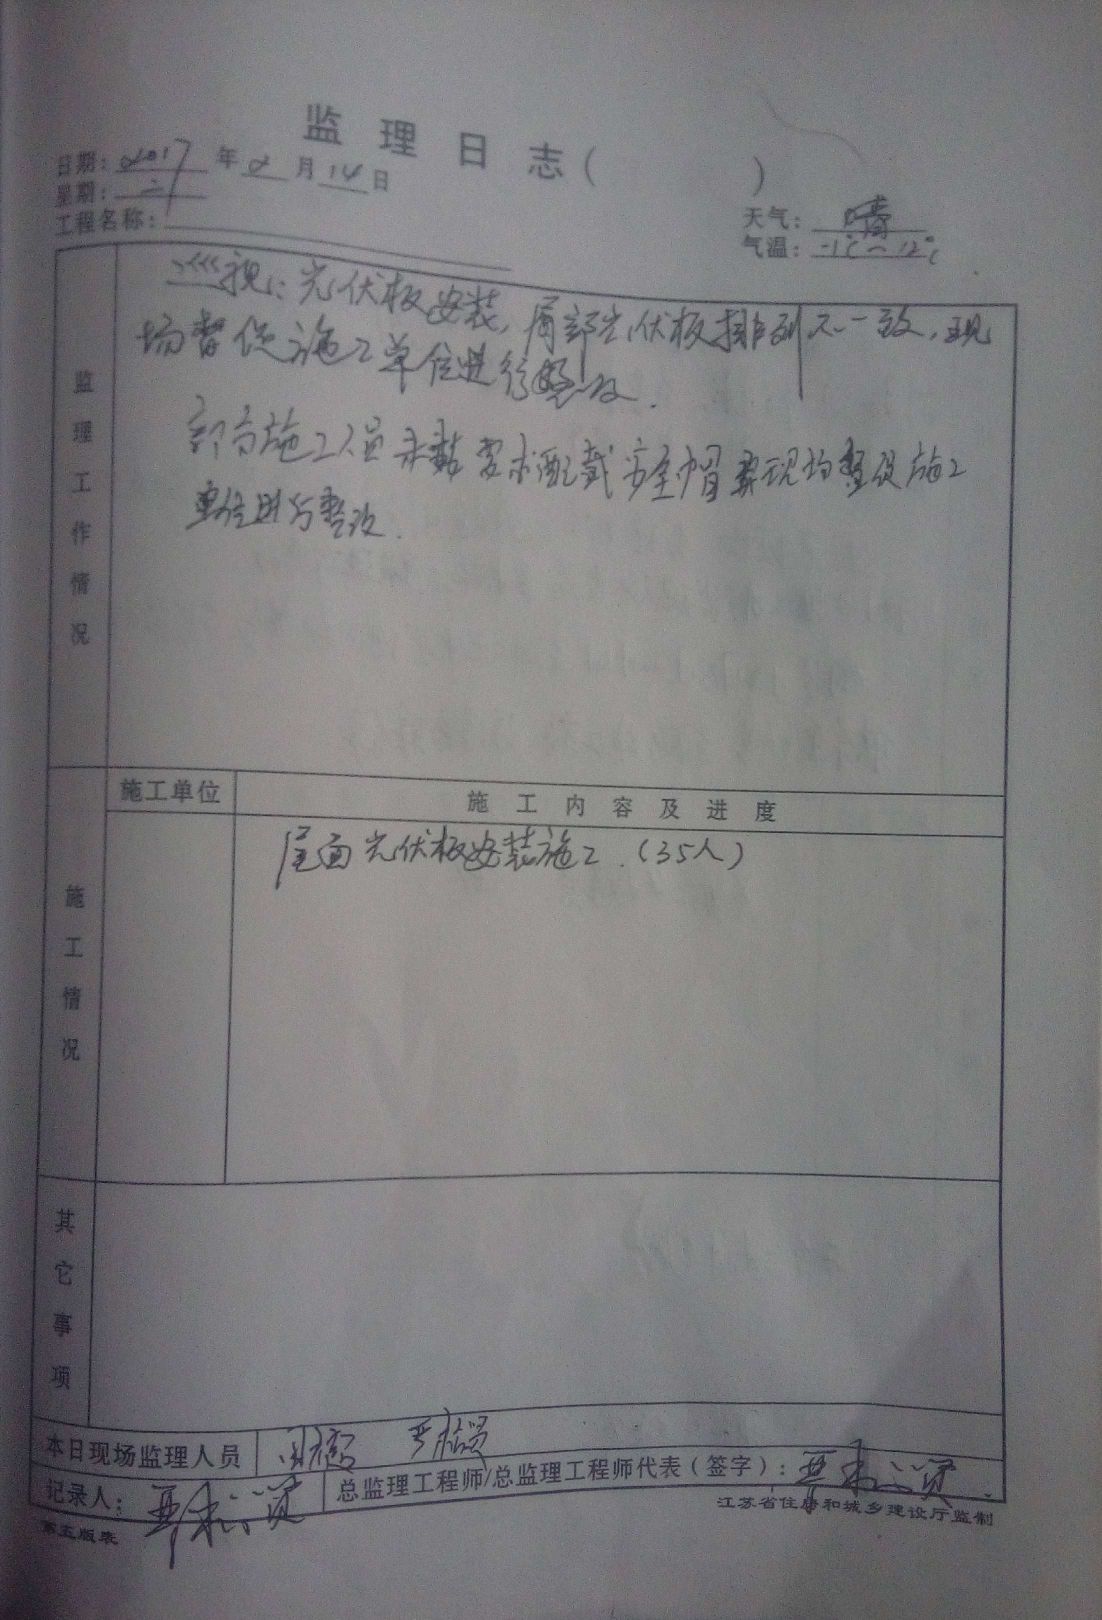 监理日志( )
日期: 2017 年 2 月 14 日
星期: 二
天气: 晴
工程名称:
气温: -1℃~12℃
监理工作情况
巡视: 光伏板安装, 局部光伏板排列不一致, 现
场督促施工单位进行整改.
部分施工人员未按要求配戴安全帽 现场督促施工
单位进行整改.
施工情况
施工单位
施工内容及进度
屋面光伏板安装施工. (35人)
其它事项
本日现场监理人员
记录人:
总监理工程师/总监理工程师代表(签字):
第五版表
江苏省住房和城乡建设厅监制